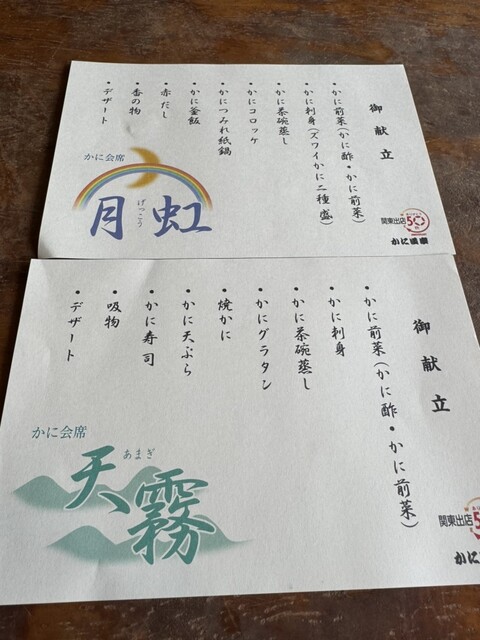 御献立
・かに前菜(かに酢・かに前菜)
・かに刺身(ズワイかに二種盛)
・かに茶碗蒸し
・かにコロッケ
・かにつみれ紙鍋
・かに釜飯
・赤だし
・香の物
・デザート
かに会席
月虹
げっこう
関東出店
50
かに道楽
御献立
・かに前菜(かに酢・かに前菜)
・かに刺身
・かに茶碗蒸し
・かにグラタン
・焼かに
・かに天ぷら
・かに寿司
・吸物
・デザート
かに会席
天霧
あまぎ
関東出店
5
かに